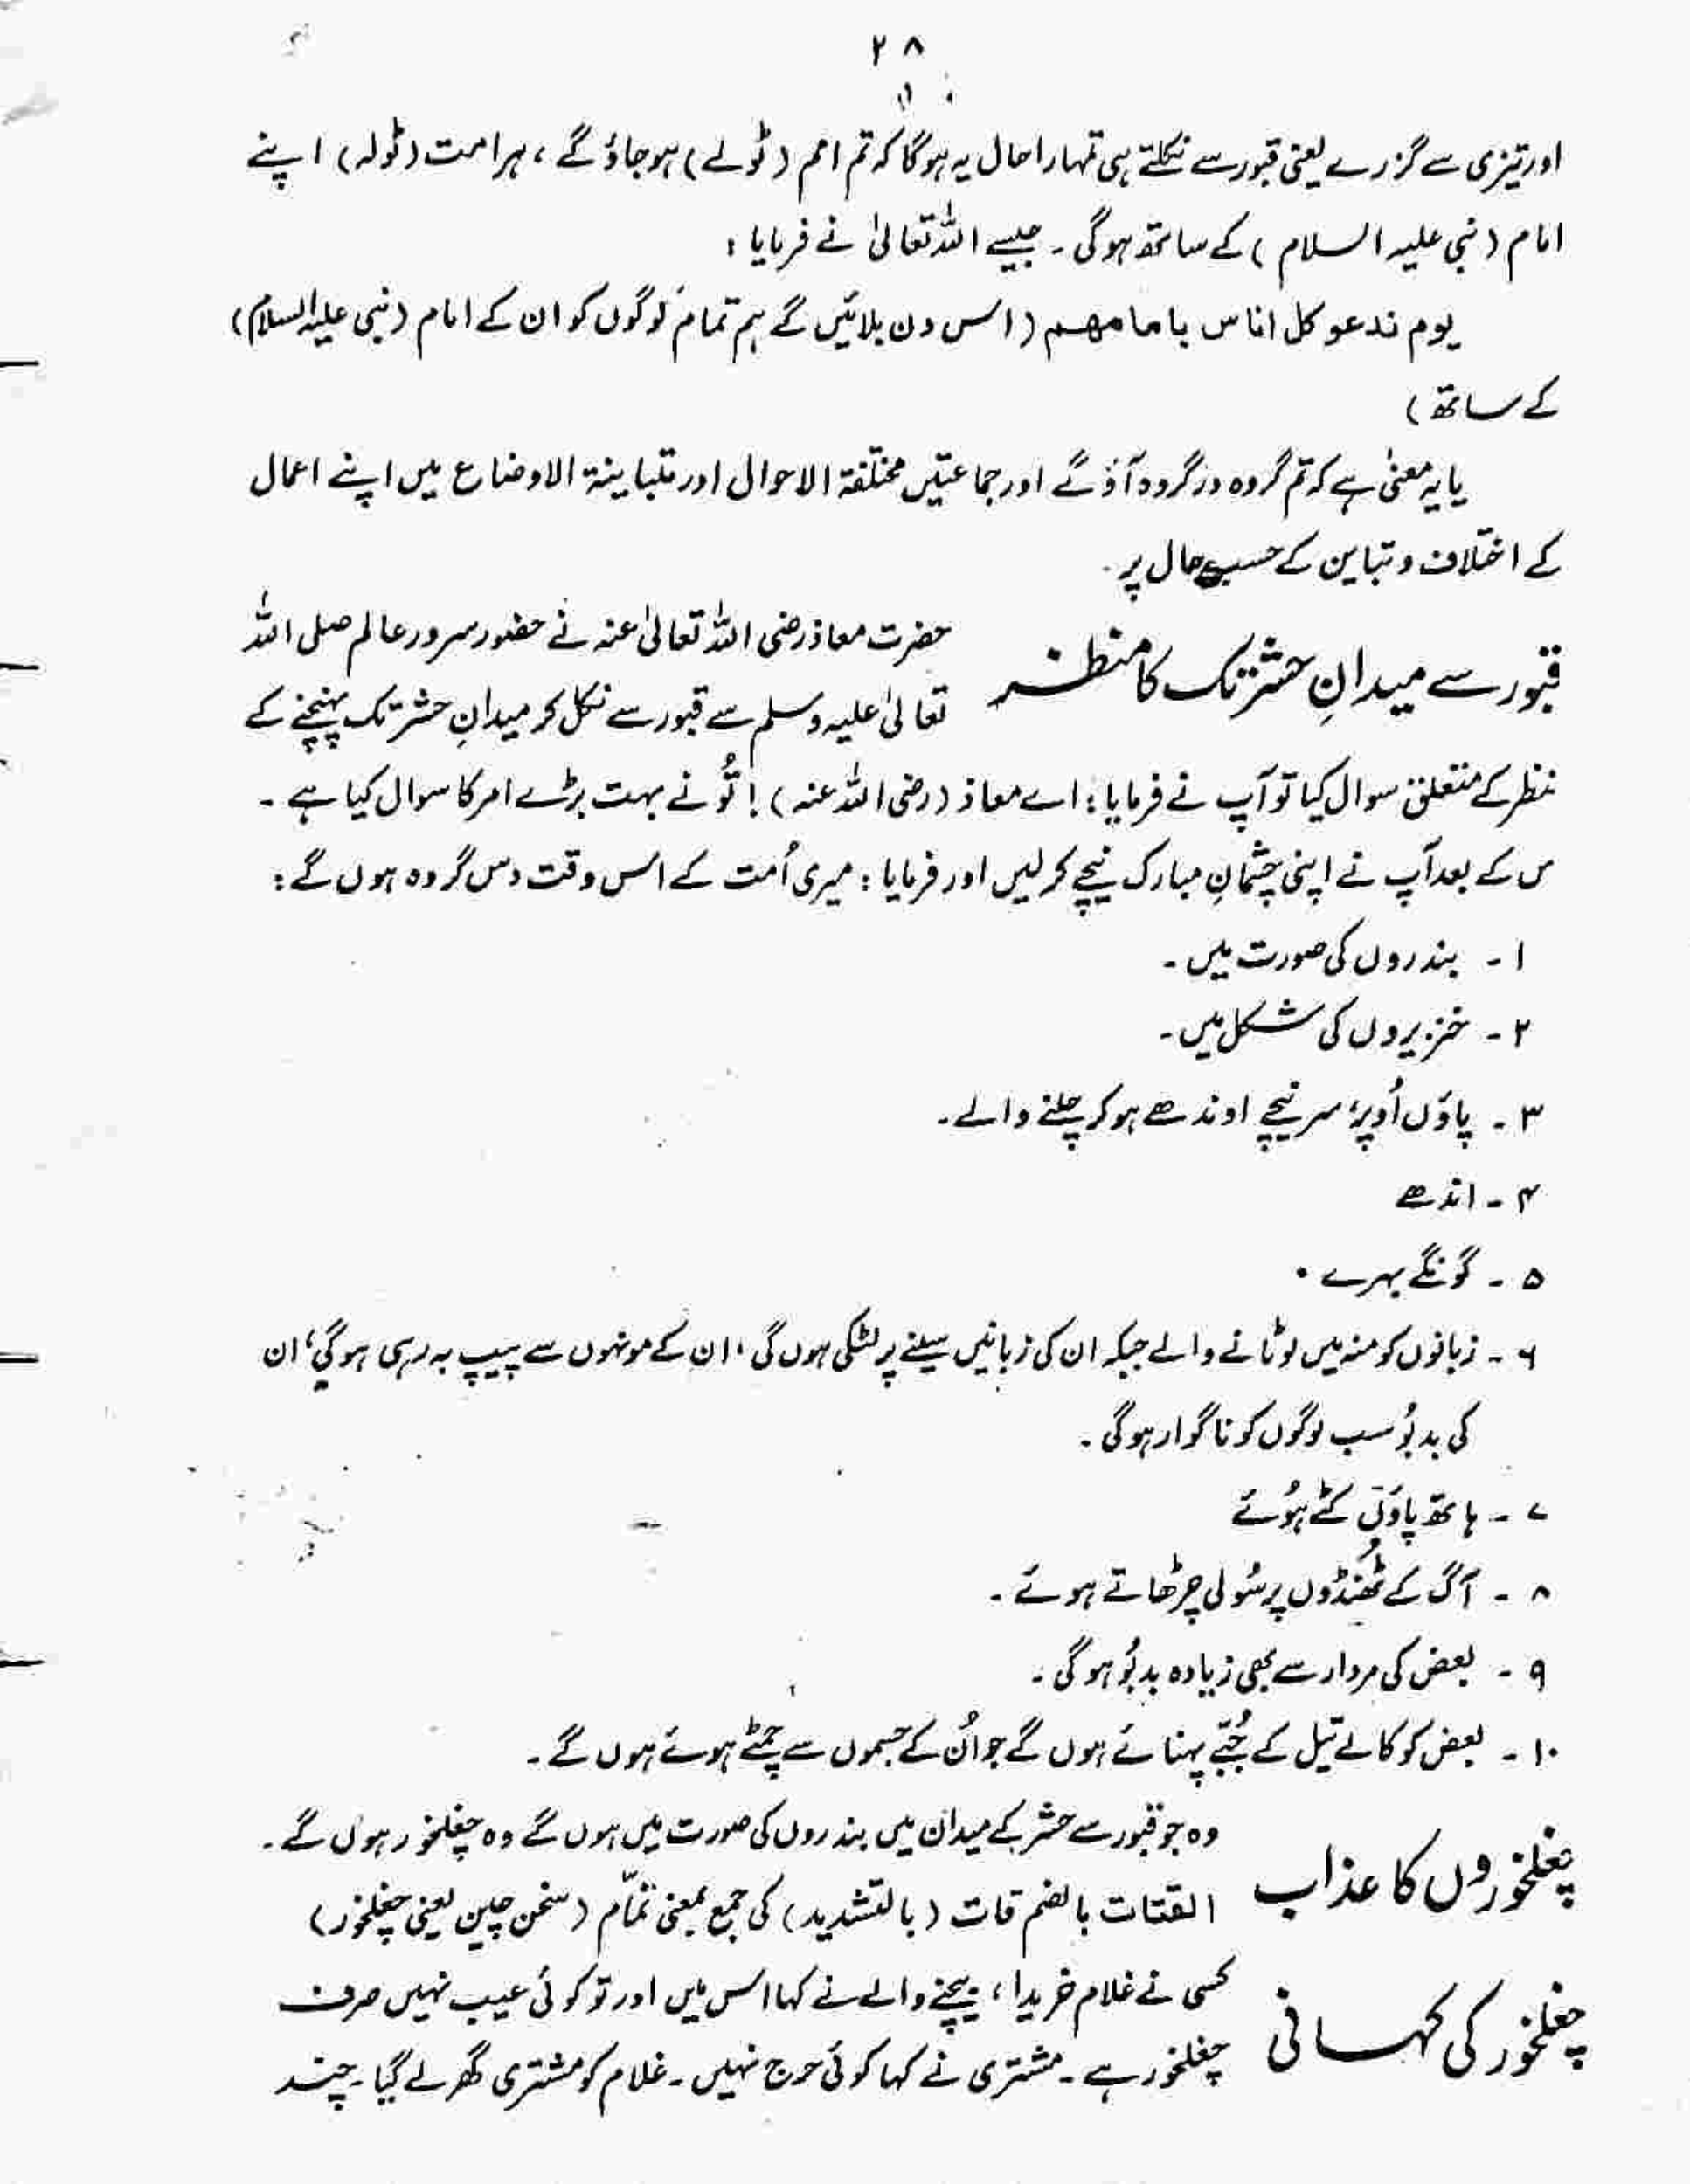 ۲۸
اور تیزی سے گزرے یعنی قبور سے نکلتے ہی تمہارا حال یہ ہوگا کہ تم امم (ٹولے) ہوجاؤ گے ، ہر امت (ٹولہ) اپنے
امام (نبی علیہ السلام ) کے ساتھ ہوگی ۔ جیسے اللہ تعالیٰ نے فرمایا :
یوم ندعو کل اناس بامامھم (اس دن بلائیں گے ہم تمام لوگوں کو ان کے امام (نبی علیہ السلام)
کے ساتھ )
یا یہ معنیٰ ہے کہ تم گروہ در گروہ آؤ گے اور جماعتیں مختلفۃ الاحوال اور متباینۃ الاوضاع میں اپنے اعمال
کے اختلاف و تباین کے حسب حال پر ۔
قبور سے میدانِ حشر تک کا منظر
حضرت معاذ رضی اللہ تعالیٰ عنہ نے حضور سرور عالم صلی اللہ
تعالیٰ علیہ وسلم سے قبور سے نکل کر میدانِ حشر تک پہنچنے کے
نظر کے متعلق سوال کیا تو آپ نے فرمایا : اے معاذ (رضی اللہ عنہ ) ! تُو نے بہت بڑے امر کا سوال کیا ہے ۔
س کے بعد آپ نے اپنی چشمانِ مبارک نیچے کر لیں اور فرمایا : میری اُمت کے اس وقت دس گروہ ہوں گے :
۱ ۔ بندروں کی صورت میں ۔
۲ ۔ خنزیروں کی شکل میں ۔
۳ ۔ پاؤں اُوپر، سر نیچے اوندھے ہو کر چلنے والے ۔
۴ ۔ اندھے
۵ ۔ گونگے بہرے ۔
۶ ۔ زبانوں کو منہ میں لوٹانے والے جبکہ ان کی زبانیں سینے پر لٹکی ہوں گی ، ان کے مونہوں سے پیپ بہ رہی ہوگی، ان
کی بدبُو سب لوگوں کو ناگوار ہوگی ۔
۷ ۔ ہاتھ پاؤں کٹے ہُوئے
۸ ۔ آگ کے ٹُھنڈوں پر سُولی چڑھاتے ہوئے ۔
۹ ۔ بعض کی مردار سے بھی زیادہ بدبُو ہوگی ۔
۱۰ ۔ بعض کو کالے تیل کے جُبّے پہنائے ہوں گے جو اُن کے جسموں سے چمٹے ہوئے ہوں گے ۔
چغلخوروں کا عذاب
وہ جو قبور سے حشر کے میدان میں بندروں کی صورت میں ہوں گے وہ چغلخور ہوں گے ۔
القتات بالضم قات (بالتشدید) کی جمع بمعنی نمّام (سخن چین یعنی چغلخور)
چغلخور کی کہانی
کسی نے غلام خریدا ، بیچنے والے نے کہا اس میں اور تو کوئی عیب نہیں صرف
چغلخور ہے ۔ مشتری نے کہا کوئی حرج نہیں ۔ غلام کو مشتری گھر لے گیا ۔ چند